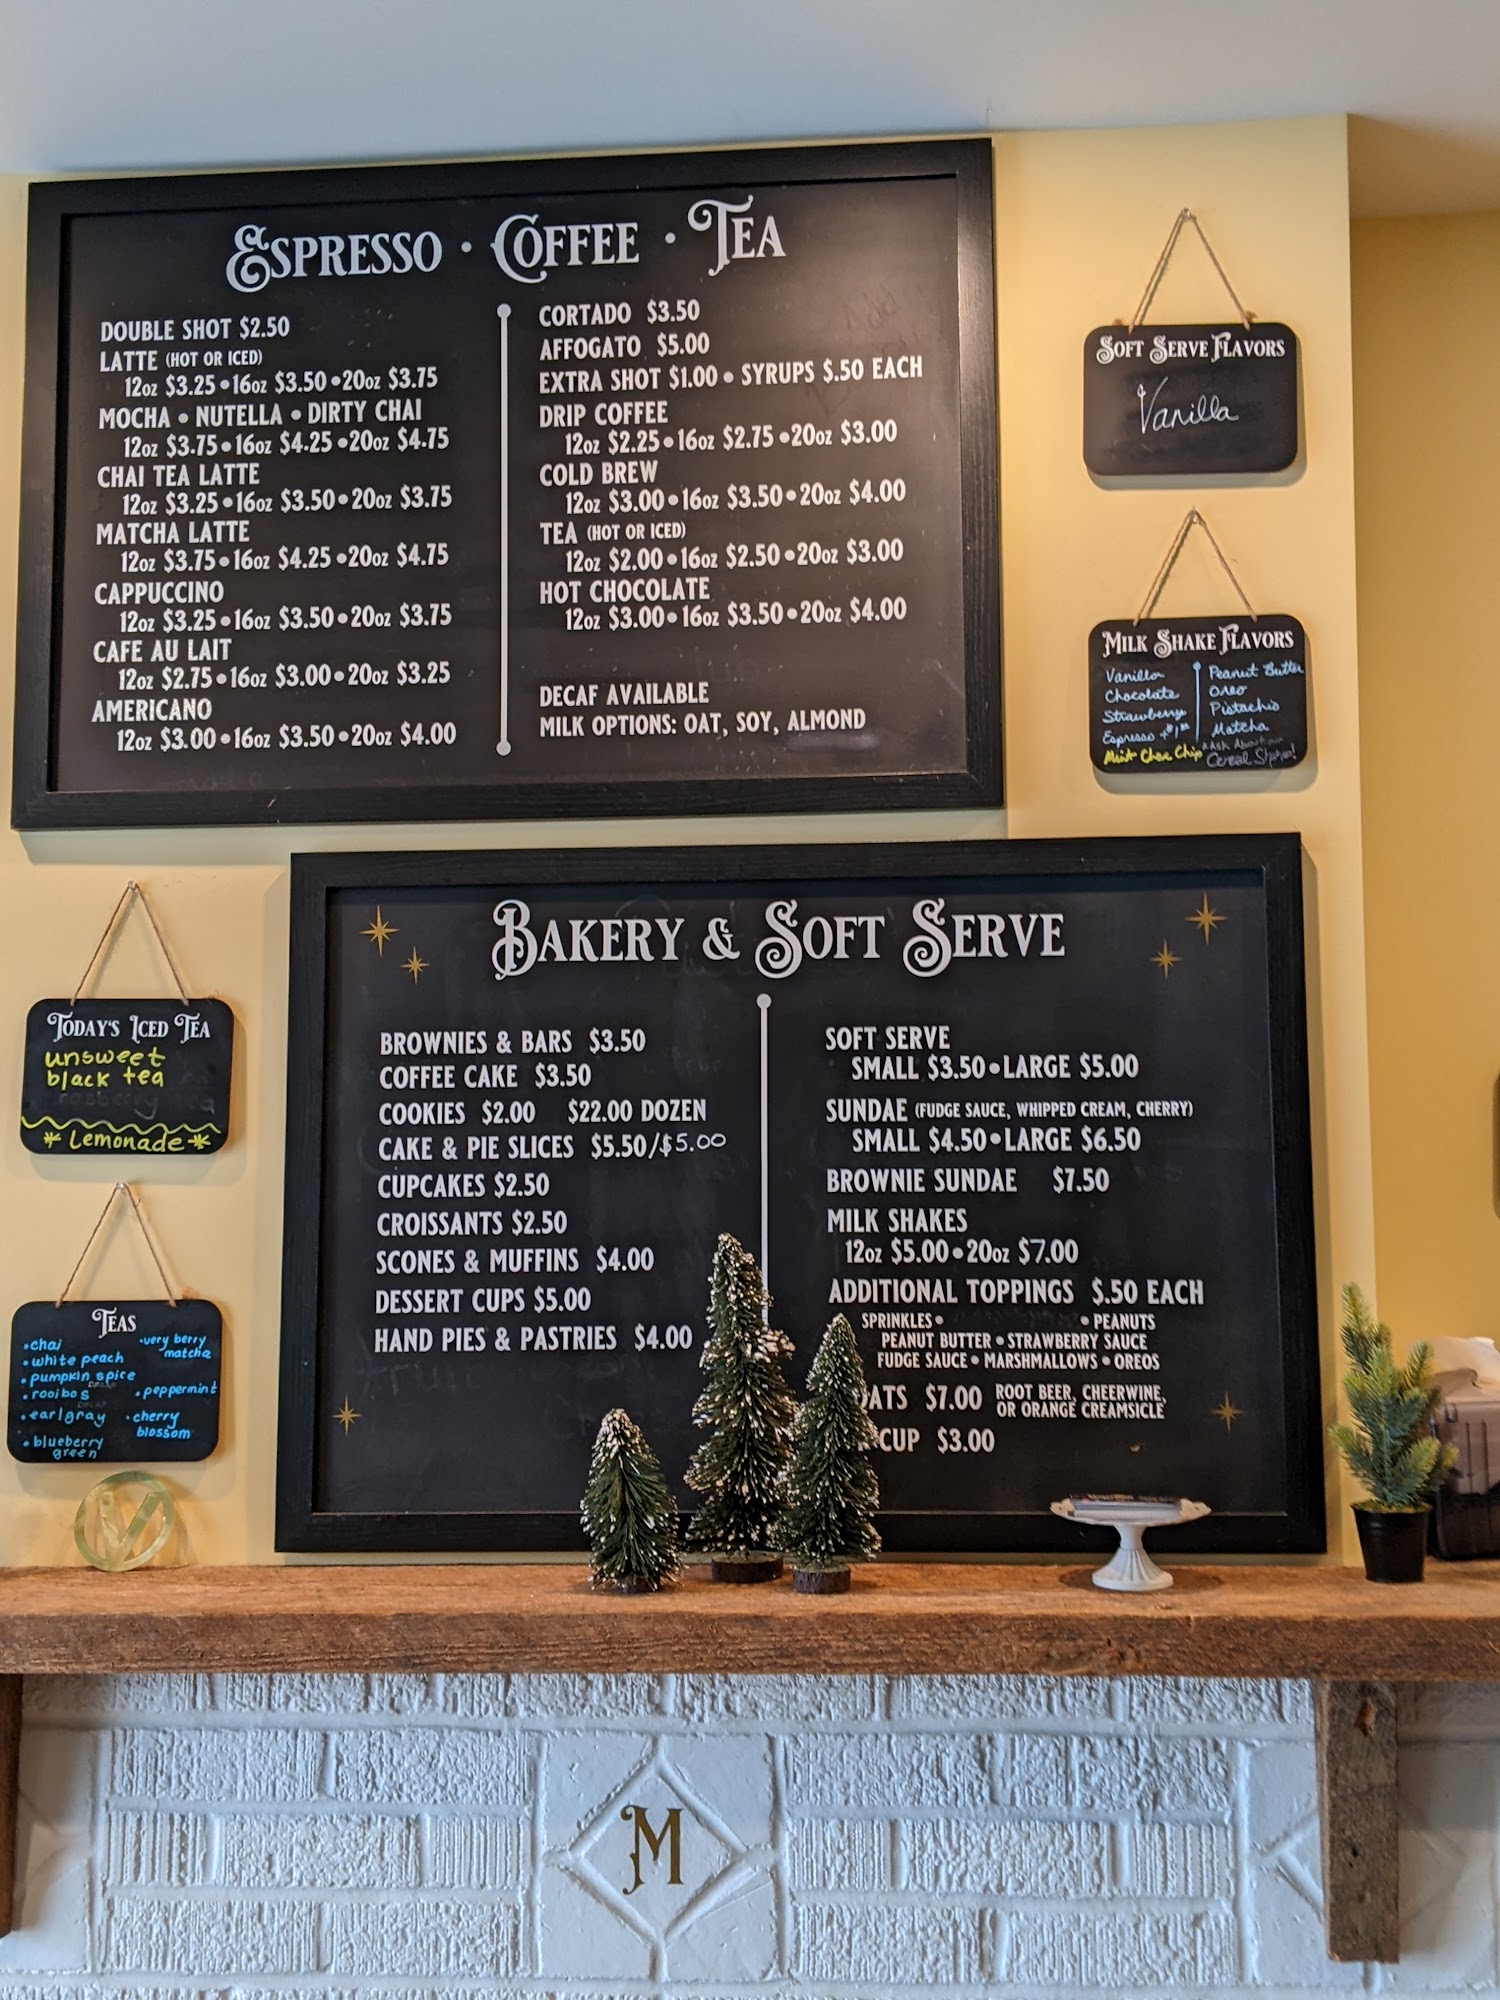 ESPRESSO · COFFEE · TEA
DOUBLE SHOT $2.50
LATTE (HOT OR ICED)
12oz $3.25 • 16oz $3.50 • 20oz $3.75
MOCHA • NUTELLA • DIRTY CHAI
12oz $3.75 • 16oz $4.25 • 20oz $4.75
CHAI TEA LATTE
12oz $3.25 • 16oz $3.50 • 20oz $3.75
MATCHA LATTE
12oz $3.75 • 16oz $4.25 • 20oz $4.75
CAPPUCCINO
12oz $3.25 • 16oz $3.50 • 20oz $3.75
CAFE AU LAIT
12oz $2.75 • 16oz $3.00 • 20oz $3.25
AMERICANO
12oz $3.00 • 16oz $3.50 • 20oz $4.00
CORTADO $3.50
AFFOGATO $5.00
EXTRA SHOT $1.00 • SYRUPS $.50 EACH
DRIP COFFEE
12oz $2.25 • 16oz $2.75 • 20oz $3.00
COLD BREW
12oz $3.00 • 16oz $3.50 • 20oz $4.00
TEA (HOT OR ICED)
12oz $2.00 • 16oz $2.50 • 20oz $3.00
HOT CHOCOLATE
12oz $3.00 • 16oz $3.50 • 20oz $4.00
DECAF AVAILABLE
MILK OPTIONS: OAT, SOY, ALMOND
SOFT SERVE FLAVORS
Vanilla
MILK SHAKE FLAVORS
Vanilla
Chocolate
Strawberry
Espresso
Mint Choc Chip
Peanut Butter
Oreo
Pistachio
Matcha
*Ask About our
Cereal
TODAY'S ICED TEA
unsweet
black tea
* Lemonade *
TEAS
• chai
• white peach
• pumpkin spice
• rooibos
• earl gray
• blueberry
green
• very berry
matcha
• peppermint
• cherry
blossom
BAKERY & SOFT SERVE
BROWNIES & BARS $3.50
COFFEE CAKE $3.50
COOKIES $2.00 $22.00 DOZEN
CAKE & PIE SLICES $5.50/$5.00
CUPCAKES $2.50
CROISSANTS $2.50
SCONES & MUFFINS $4.00
DESSERT CUPS $5.00
HAND PIES & PASTRIES $4.00
SOFT SERVE
SMALL $3.50 • LARGE $5.00
SUNDAE (FUDGE SAUCE, WHIPPED CREAM, CHERRY)
SMALL $4.50 • LARGE $6.50
BROWNIE SUNDAE $7.50
MILK SHAKES
12oz $5.00 • 20oz $7.00
ADDITIONAL TOPPINGS $.50 EACH
SPRINKLES • • PEANUTS
PEANUT BUTTER • STRAWBERRY SAUCE
FUDGE SAUCE • MARSHMALLOWS • OREOS
OATS $7.00 ROOT BEER, CHEERWINE,
OR ORANGE CREAMSICLE
CUP $3.00
M